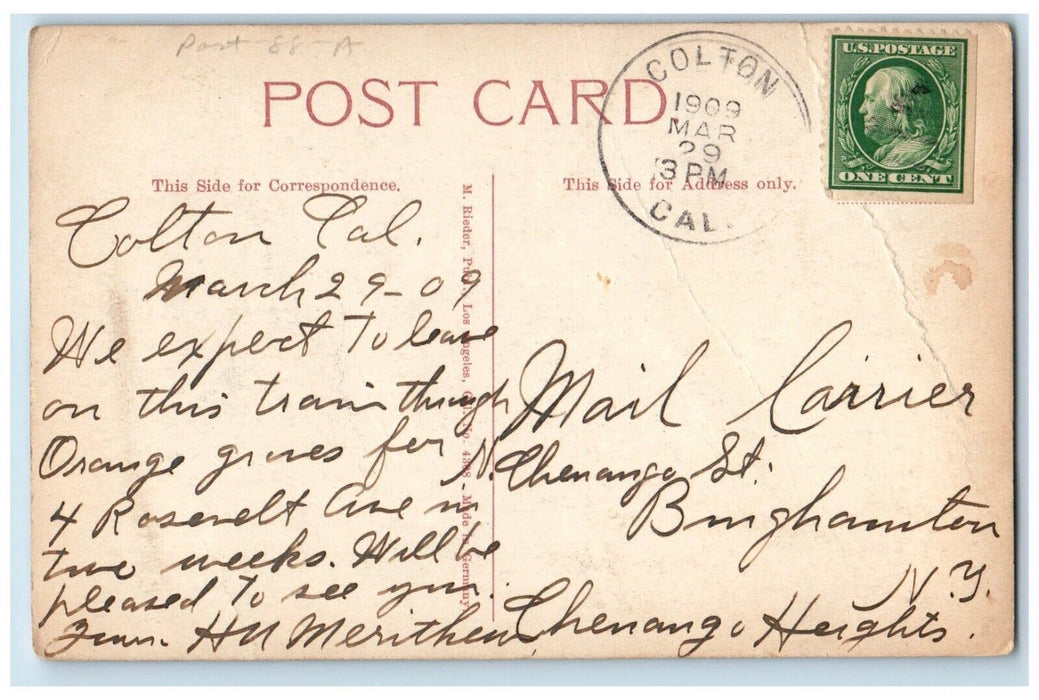 Post-88-A
POST CARD
COLTON
1909
MAR
29
3 PM
CAL.
U.S. POSTAGE
ONE CENT
This Side for Correspondence.
This Side for Address only.
Colton Cal.
March 29-09
We expect to leave
on this train through
Orange groves for
4 Rosevelt Ave in
two weeks. Will be
pleased to see you.
H Merithew
M. Rieder, Publ., Los Angeles, Cal. No. 4398 - Made in Germany
Mail Carrier
N. Chenango St.
Binghamton
N.Y.
Chenango Heights.